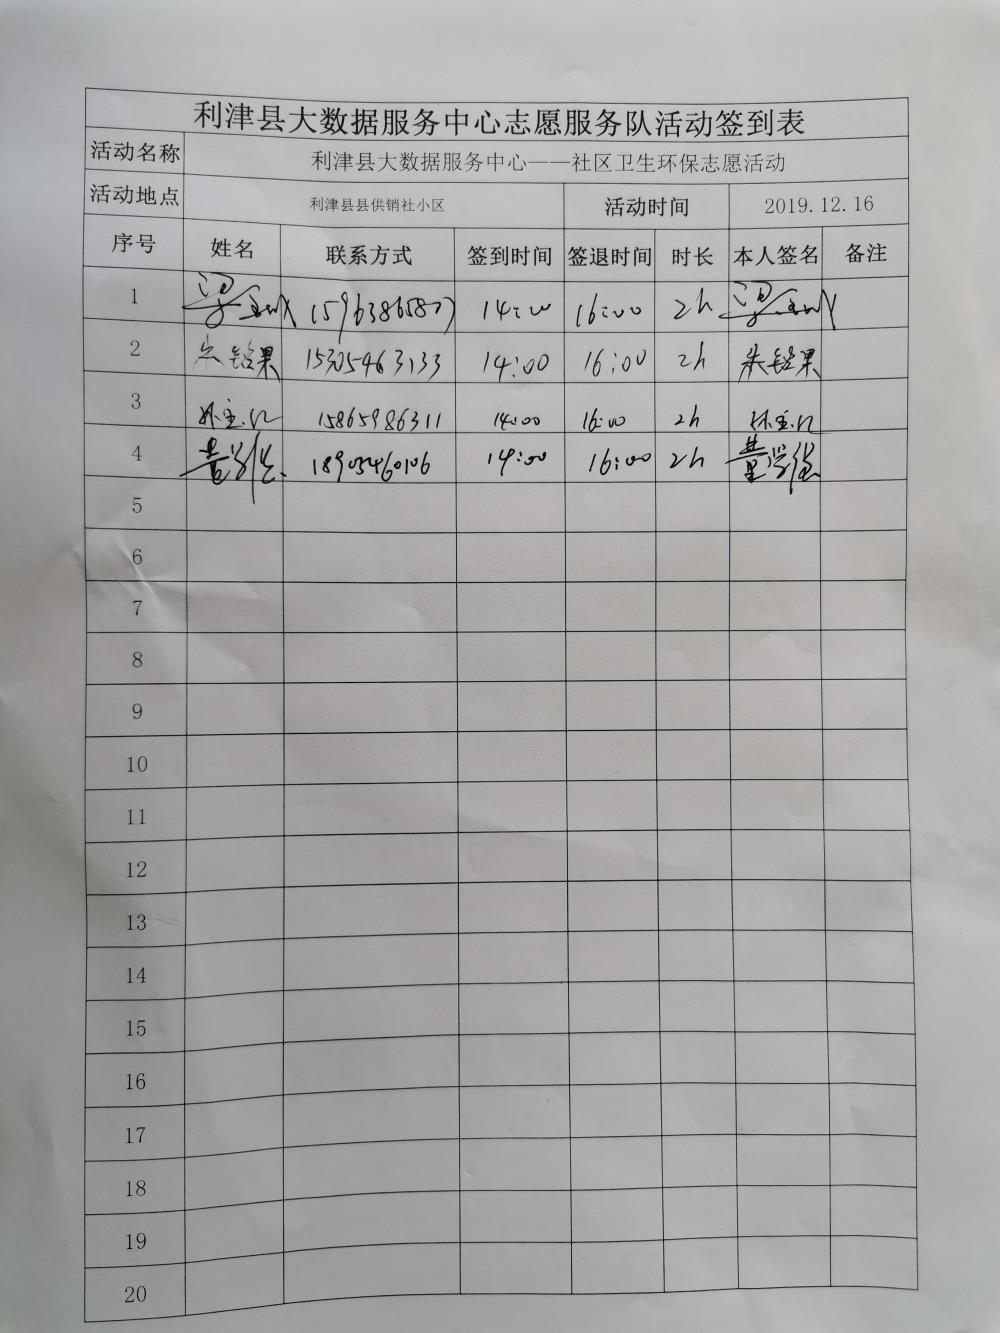 利津县大数据服务中心志愿服务队活动签到表
活动名称 利津县大数据服务中心——社区卫生环保志愿活动
活动地点 利津县县供销社小区 活动时间 2019.12.16
序号 姓名 联系方式 签到时间 签退时间 时长 本人签名 备注
1 14:00 16:00 2h
2 朱铭果 15305463133 14:00 16:00 2h 朱铭果
3 15865986311 14:00 16:00 2h
4 18905460106 14:00 16:00 2h
5
6
7
8
9
10
11
12
13
14
15
16
17
18
19
20